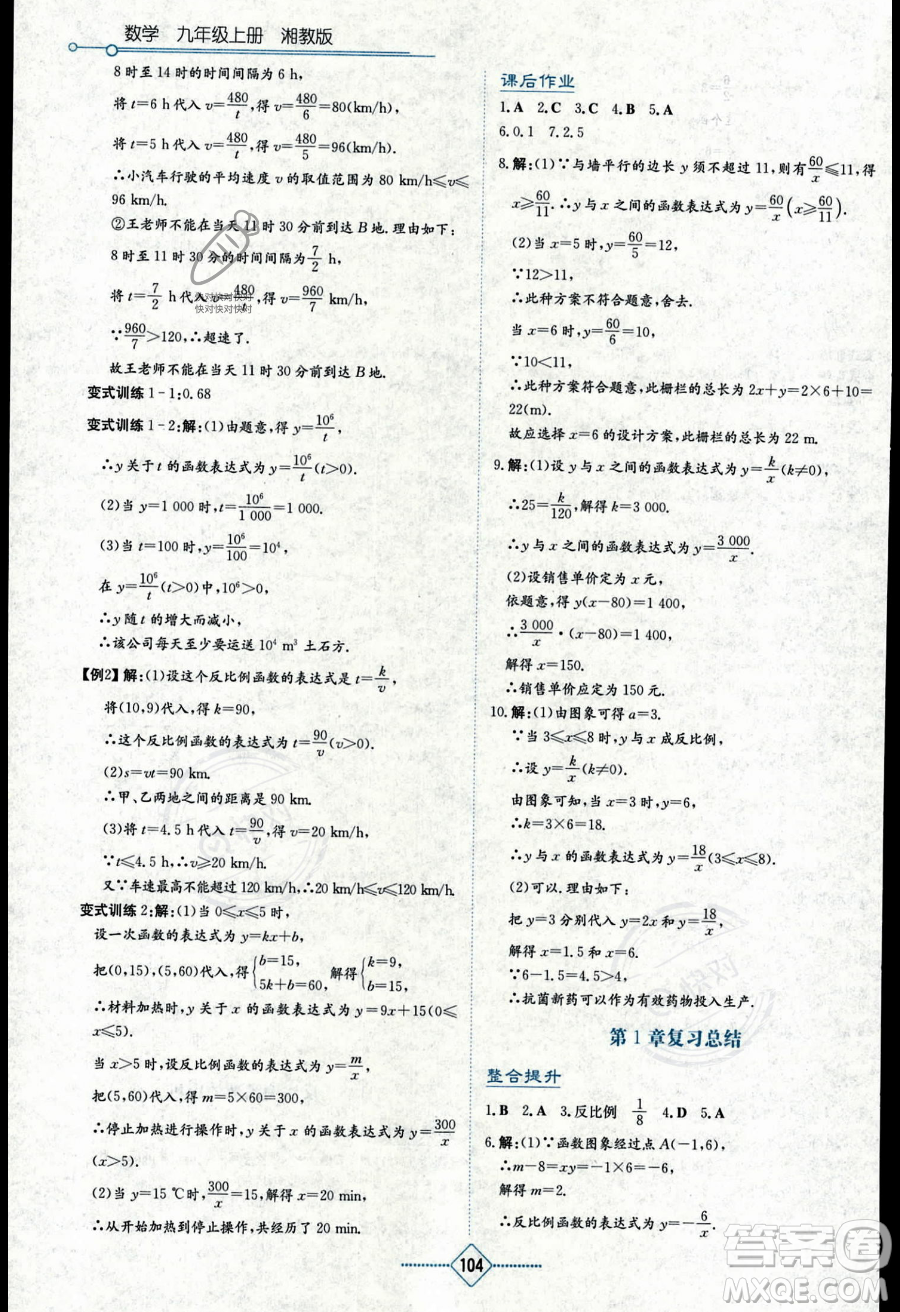 数学 九年级上册 湘教版
8 时至 14 时的时间间隔为 6 h,
将 t=6 h 代入 v=480/t,得 v=480/6=80(km/h),
将 t=5 h 代入 v=480/t,得 v=480/5=96(km/h).
∴小汽车行驶的平均速度 v 的取值范围为 80 km/h≤v≤
96 km/h.
②王老师不能在当天 11 时 30 分前到达 B 地.理由如下:
8 时至 11 时 30 分的时间间隔为 7/2 h,
将 t=7/2 h 代入 v=480/t,得 v=960/7 km/h.
快对快对快对
快对快对快对
∵960/7>120,∴超速了.
故王老师不能在当天 11 时 30 分前到达 B 地.
变式训练 1-1:0.68
变式训练 1-2:解:(1)由题意,得 y=10⁶/t,
∴y 关于 t 的函数表达式为 y=10⁶/t(t>0).
(2)当 y=1 000 时,t=10⁶/1 000=1 000.
(3)当 t=100 时,y=10⁶/100=10⁴,
在 y=10⁶/t(t>0)中,10⁶>0,
∴y 随 t 的增大而减小,
∴该公司每天至少要运送 10⁴ m³ 土石方.
【例2】解:(1)设这个反比例函数的表达式是 t=k/v,
将(10,9)代入,得 k=90,
∴这个反比例函数的表达式为 t=90/v(v>0).
(2)s=vt=90 km.
∴甲、乙两地之间的距离是 90 km.
(3)将 t=4.5 h 代入 t=90/v,得 v=20 km/h,
∵t≤4.5 h,∴v≥20 km/h.
又∵车速最高不能超过 120 km/h,∴20 km/h≤v≤120 km/h.
变式训练 2:解:(1)当 0≤x≤5 时,
设一次函数的表达式为 y=kx+b,
把(0,15),(5,60)代入,得{b=15, 5k+b=60, 解得{k=9, b=15,
∴材料加热时,y 关于 x 的函数表达式为 y=9x+15(0≤
x≤5).
当 x>5 时,设反比例函数的表达式为 y=m/x,
把(5,60)代入,得 m=5×60=300,
∴停止加热进行操作时,y 关于 x 的函数表达式为 y=300/x
(x>5).
(2)当 y=15 ℃时,300/x=15,解得 x=20 min,
∴从开始加热到停止操作,共经历了 20 min.
课后作业
1.A 2.C 3.C 4.B 5.A
6.0.1 7.2.5
8.解:(1)∵与墙平行的边长 y 须不超过 11,则有60/x≤11,得
x≥60/11.∴y 与 x 之间的函数表达式为 y=60/x(x≥60/11).
(2)当 x=5 时,y=60/5=12,
∵12>11,
∴此种方案不符合题意,舍去.
当 x=6 时,y=60/6=10,
∵10<11,
∴此种方案符合题意,此栅栏的总长为 2x+y=2×6+10=
22(m).
故应选择 x=6 的设计方案,此栅栏的总长为 22 m.
9.解:(1)设 y 与 x 之间的函数表达式为 y=k/x(k≠0),
∴25=k/120,解得 k=3 000.
∴y 与 x 之间的函数表达式为 y=3 000/x.
(2)设销售单价定为 x 元,
依题意,得 y(x-80)=1 400,
∴3 000/x·(x-80)=1 400,
解得 x=150.
∴销售单价应定为 150 元.
10.解:(1)由图象可得 a=3.
∵当 3≤x≤8 时,y 与 x 成反比例,
∴设 y=k/x(k≠0).
由图象可知,当 x=3 时,y=6,
∴k=3×6=18.
∴y 与 x 的函数表达式为 y=18/x(3≤x≤8).
(2)可以.理由如下:
把 y=3 分别代入 y=2x 和 y=18/x,
解得 x=1.5 和 x=6.
∵6-1.5=4.5>4,
∴抗菌新药可以作为有效药物投入生产.
第 1 章复习总结
整合提升
1.B 2.A 3.反比例 1/8 4.D 5.A
6.解:(1)∵函数图象经过点 A(-1,6),
∴m-8=xy=-1×6=-6,
解得 m=2.
∴反比例函数的表达式为 y=-6/x.
104
答案圈
MXQE.COM